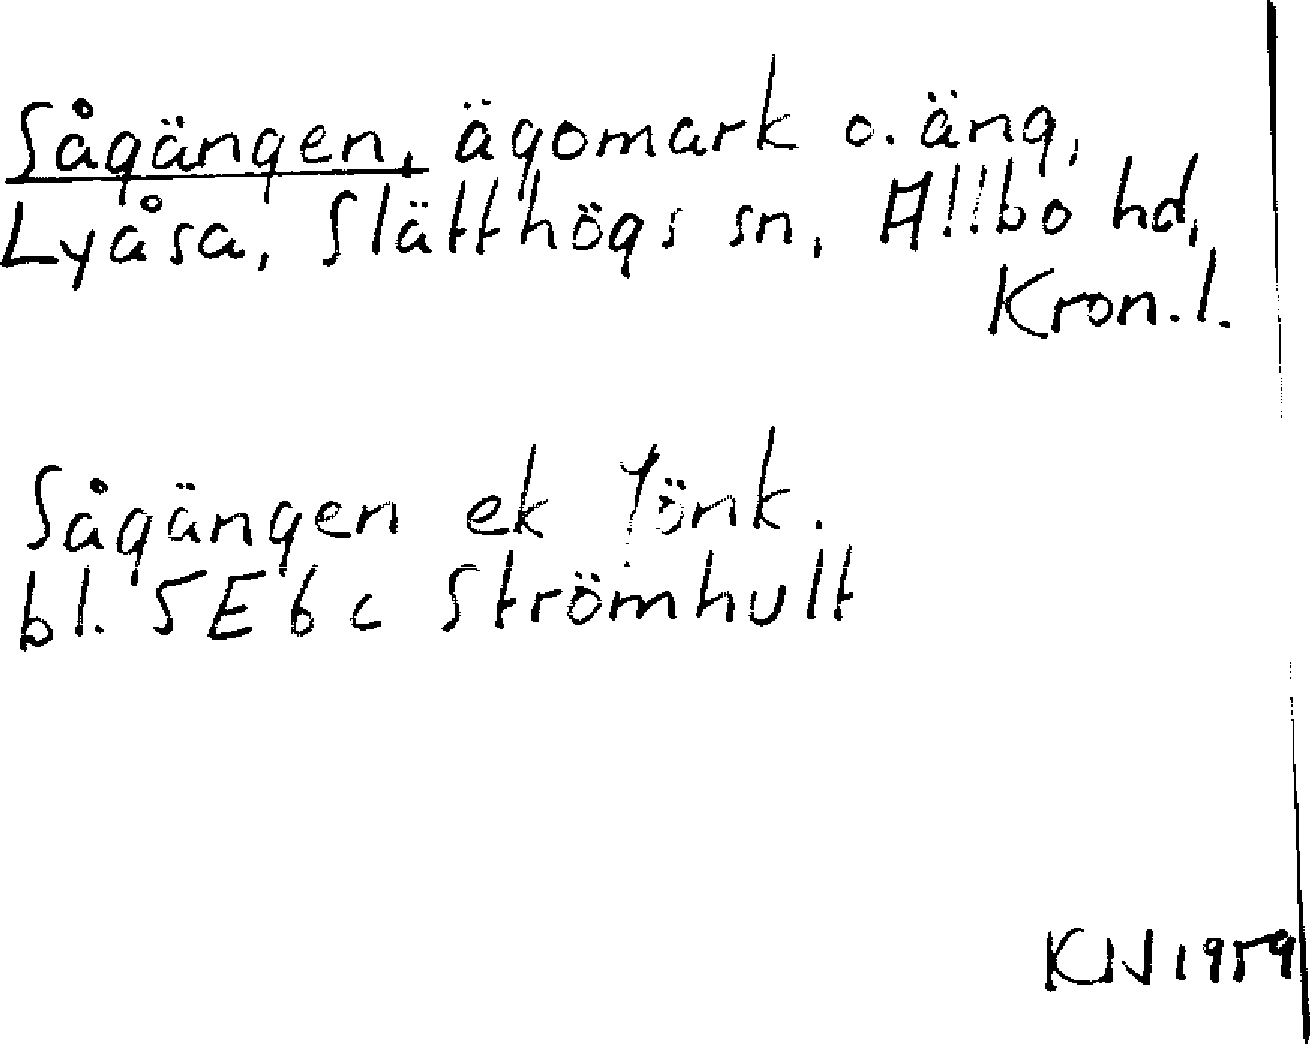 Sågängen, ägomark o. äng,
Lyåsa, Slätthögs sn, Allbo hd,
Kron. l.
Sågängen ek Jönk.
bl. 5E6c Strömhult
KN 1959